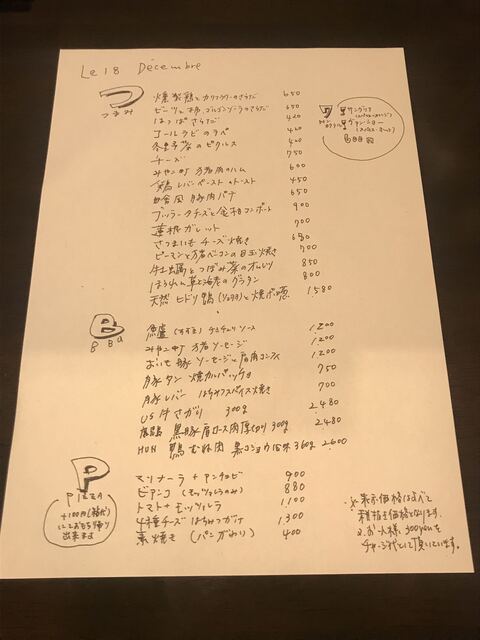 Le 18 Décembre
つ
つまみ
燻製鶏とカリフラワーのさらだ 650
ビーツと柿、ゴルゴンゾーラのさらだ 650
はっぱさらだ 420
コールラビのラペ 460
冬野菜のピクルス 400
チーズ 750
みやこ町 万猪肉のハム 600
鶏レバーペーストとトースト 450
田舎風 豚肉パテ 650
ブッラータチーズと金柑コンポート 900
蓮根ガレット 700
さつまいもチーズ焼き 680
ピーマンと万猪ベーコンの目玉焼き 700
牡蠣とつぼみ菜のオムレツ 850
ほうれん草と海老のグラタン 800
天然 ヒドリ鴨 と焼げ葱 1580
ワ
サングリア
ヴァン・ショー
各
B
BBQ
魚鱸(すずき) チミチュリソース 1,200
みやこ町 万猪ソーセージ 1,200
おいも豚 ソーセージと肩肉コンフィ 1,200
豚タン 焼カルパッチョ 750
豚レバー はちみつスパイス焼き 700
US牛さがり 300g 2,480
黒豚肩ロース肉厚切り 300g 2,480
HUN 鴨むね肉 黒コショウ風味 360g 2,600
P
PIZZA
+100円(箱代)
にてお持ち帰り
出来ます
マリナーラ + アンチョビ 900
ビアンコ (モッツァレラのみ) 880
トマト + モッツァレラ 1,100
4種チーズ はちみつがけ 1,300
素焼き (パンがわり) 400
※表示価格はすべて
税抜き価格となります。
※お一人様、300yenを
チャージ代として頂いています。